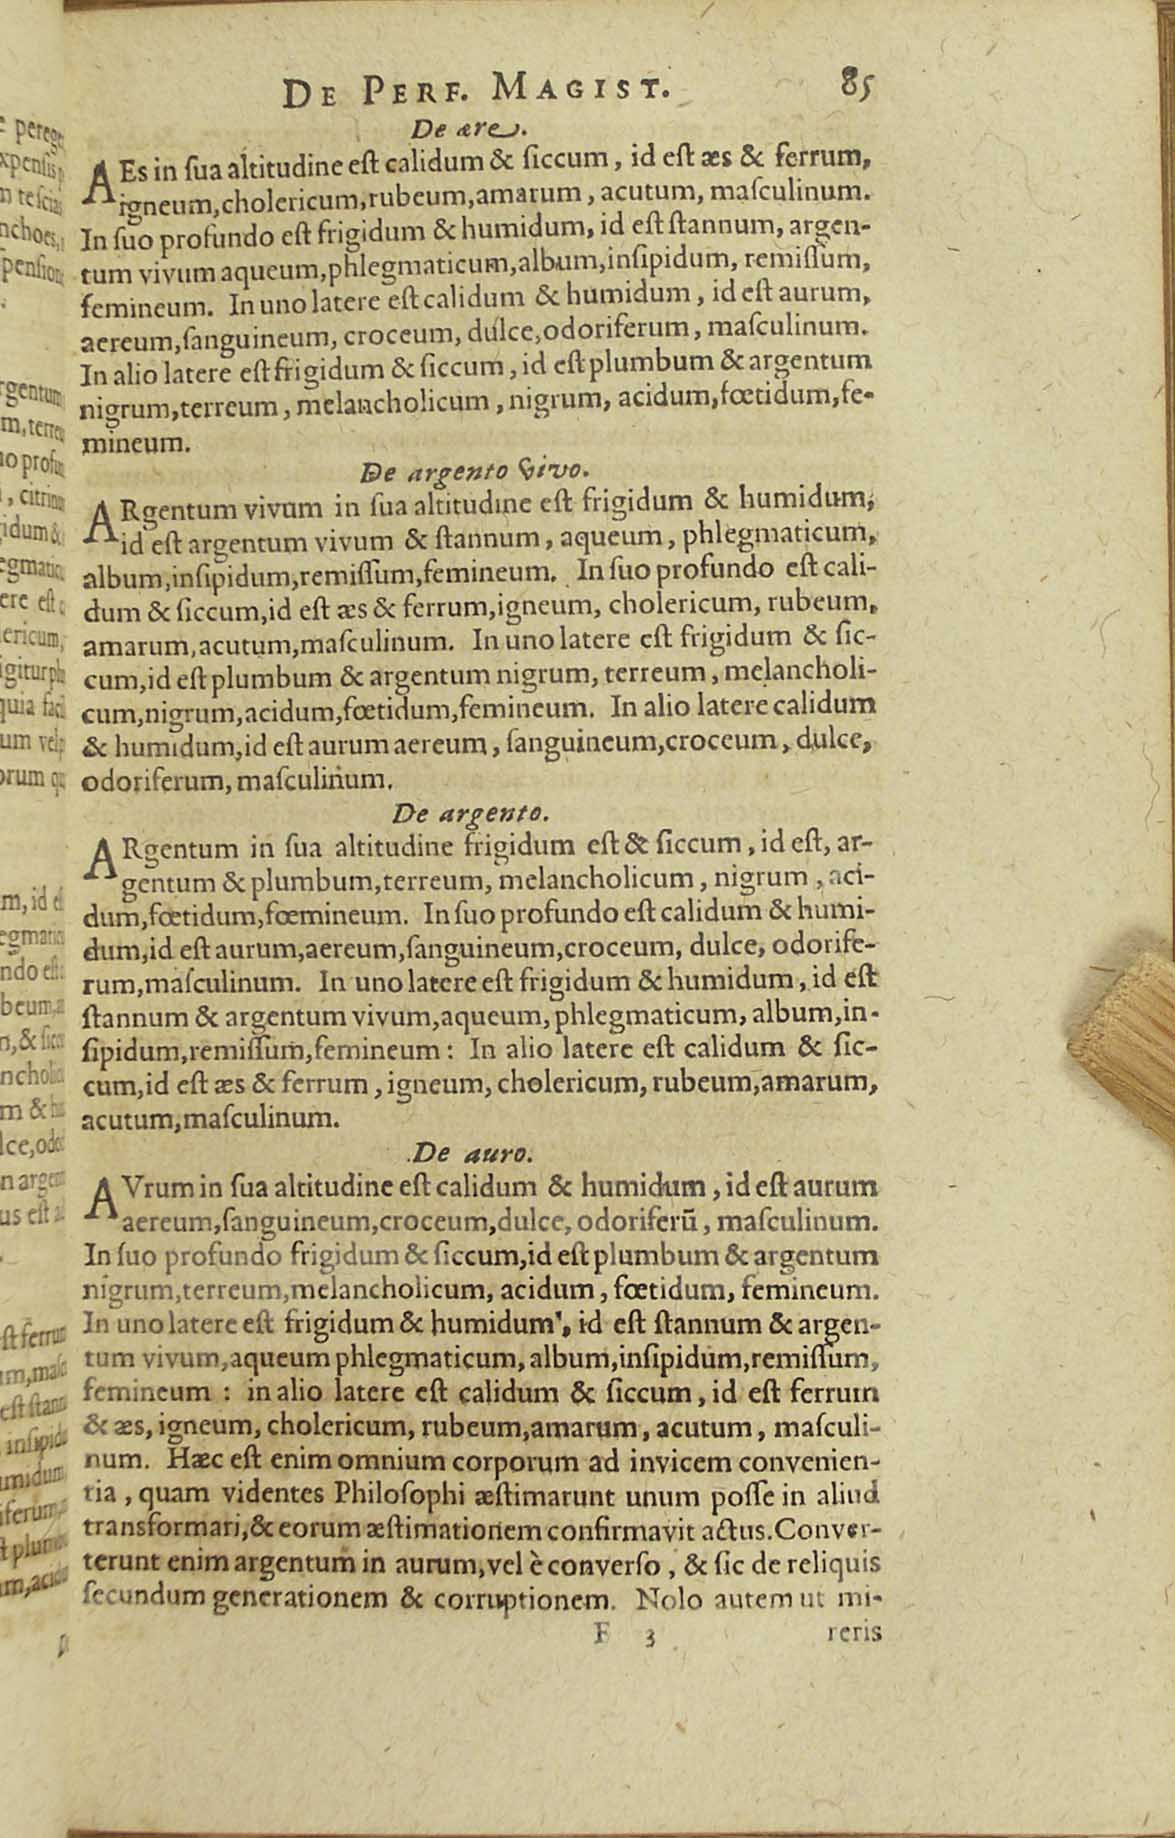 DE PERF. MAGIST. 85
De ære.
AEs in ſua altitudine eſt calidum & ſiccum, id eſt æs & ferrum,
igneum, cholericum, rubeum, amarum, acutum, maſculinum.
In ſuo profundo eſt frigidum & humidum, id eſt ſtannum, argen-
tum vivum aqueum, phlegmaticum, album, inſipidum, remiſſum,
femineum. In uno latere eſt calidum & humidum, id eſt aurum,
aereum, ſanguineum, croceum, dulce, odoriferum, maſculinum.
In alio latere eſt frigidum & ſiccum, id eſt plumbum & argentum
nigrum, terreum, melancholicum, nigrum, acidum, fœtidum, fe-
mineum.
De argento vivo.
ARgentum vivum in ſua altitudine eſt frigidum & humidum,
id eſt argentum vivum & ſtannum, aqueum, phlegmaticum,
album, inſipidum, remiſſum, femineum. In ſuo profundo eſt cali-
dum & ſiccum, id eſt æs & ferrum, igneum, cholericum, rubeum,
amarum, acutum, maſculinum. In uno latere eſt frigidum & ſic-
cum, id eſt plumbum & argentum nigrum, terreum, melancholi-
cum, nigrum, acidum, fœtidum, femineum. In alio latere calidum
& humidum, id eſt aurum aereum, ſanguineum, croceum, dulce,
odoriferum, maſculinum.
De argento.
ARgentum in ſua altitudine frigidum eſt & ſiccum, id eſt, ar-
gentum & plumbum, terreum, melancholicum, nigrum, aci-
dum, fœtidum, fœmineum. In ſuo profundo eſt calidum & humi-
dum, id eſt aurum, aereum, ſanguineum, croceum, dulce, odorife-
rum, maſculinum. In uno latere eſt frigidum & humidum, id eſt
ſtannum & argentum vivum, aqueum, phlegmaticum, album, in-
ſipidum, remiſſum, femineum: In alio latere eſt calidum & ſic-
cum, id eſt æs & ferrum, igneum, cholericum, rubeum, amarum,
acutum, maſculinum.
De auro.
AVrum in ſua altitudine eſt calidum & humidum, id eſt aurum
aereum, ſanguineum, croceum, dulce, odoriferū, maſculinum.
In ſuo profundo frigidum & ſiccum, id eſt plumbum & argentum
nigrum, terreum, melancholicum, acidum, fœtidum, femineum.
In uno latere eſt frigidum & humidum, id eſt ſtannum & argen-
tum vivum, aqueum phlegmaticum, album, inſipidum, remiſſum,
femineum : in alio latere eſt calidum & ſiccum, id eſt ferrum
& æs, igneum, cholericum, rubeum, amarum, acutum, maſculi-
num. Hæc eſt enim omnium corporum ad invicem convenien-
tia, quam videntes Philoſophi æſtimarunt unum poſſe in aliud
transformari, & eorum æſtimationem confirmavit actus. Conver-
terunt enim argentum in aurum, vel è converſo, & ſic de reliquis
ſecundum generationem & corruptionem. Nolo autem ut mi-
F 3 reris